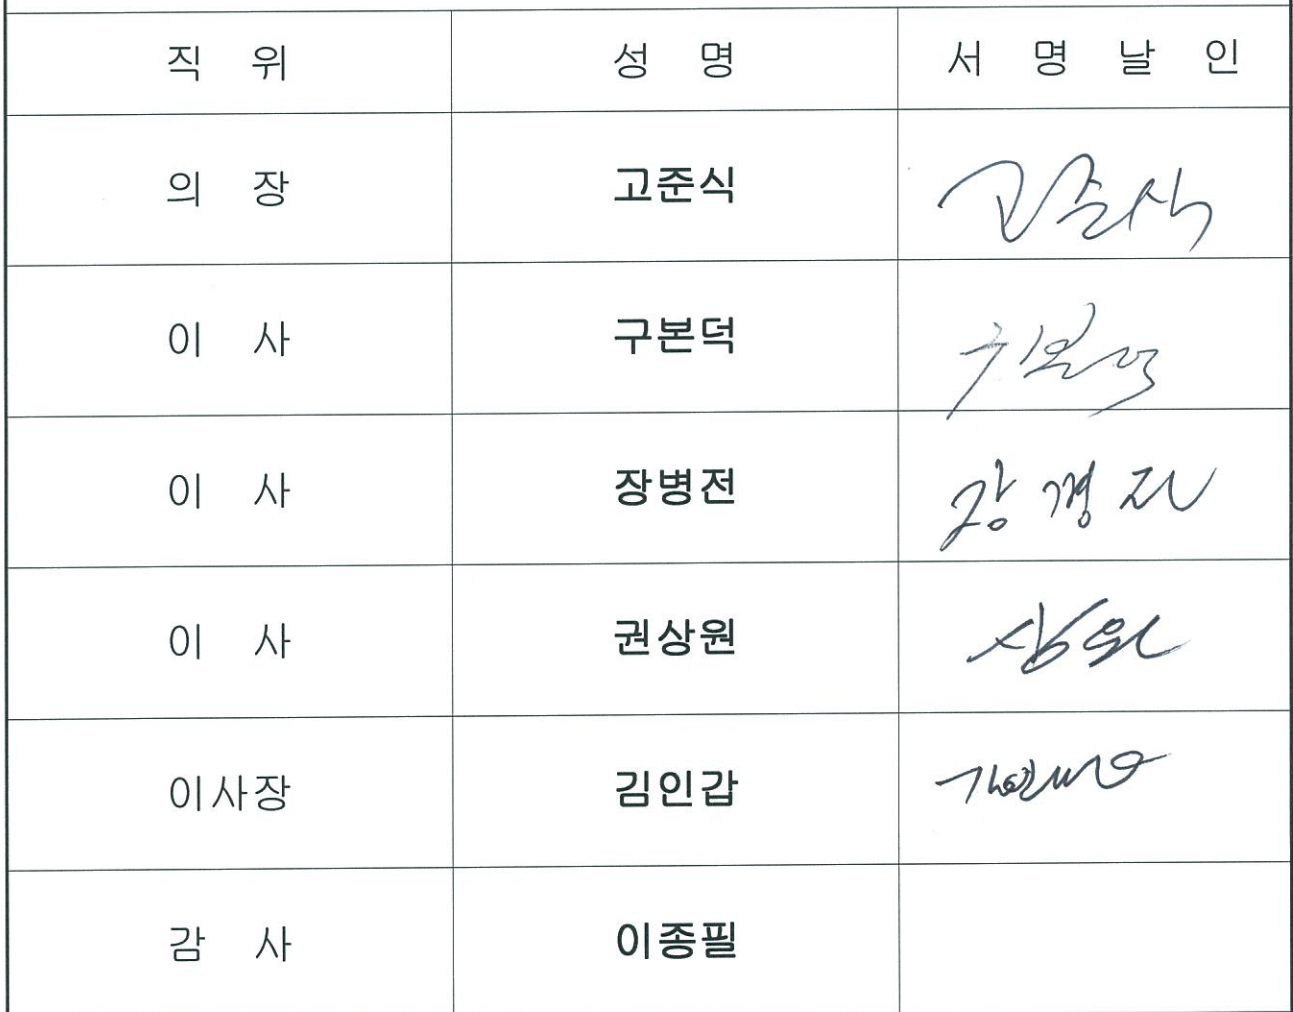 직 위 성 명 서 명 날 인
의 장 고준식 고준식
이 사 구본덕 구본덕
이 사 장병전 장병전
이 사 권상원 상원
이사장 김인갑
감 사 이종필